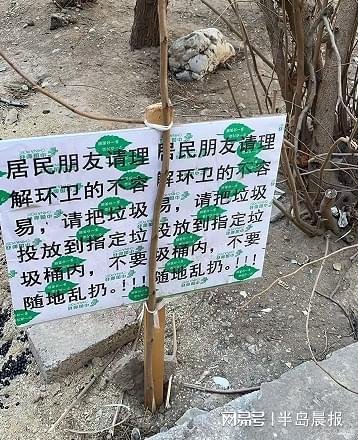 居民朋友请理
解环卫的不容
易，请把垃圾
投放到指定垃
圾桶内，不要
随地乱扔。!!!
居民朋友请理
解环卫的不容
易，请把垃圾
投放到指定垃
圾桶内，不要
随地乱扔。!!!
网易号 | 半岛晨报